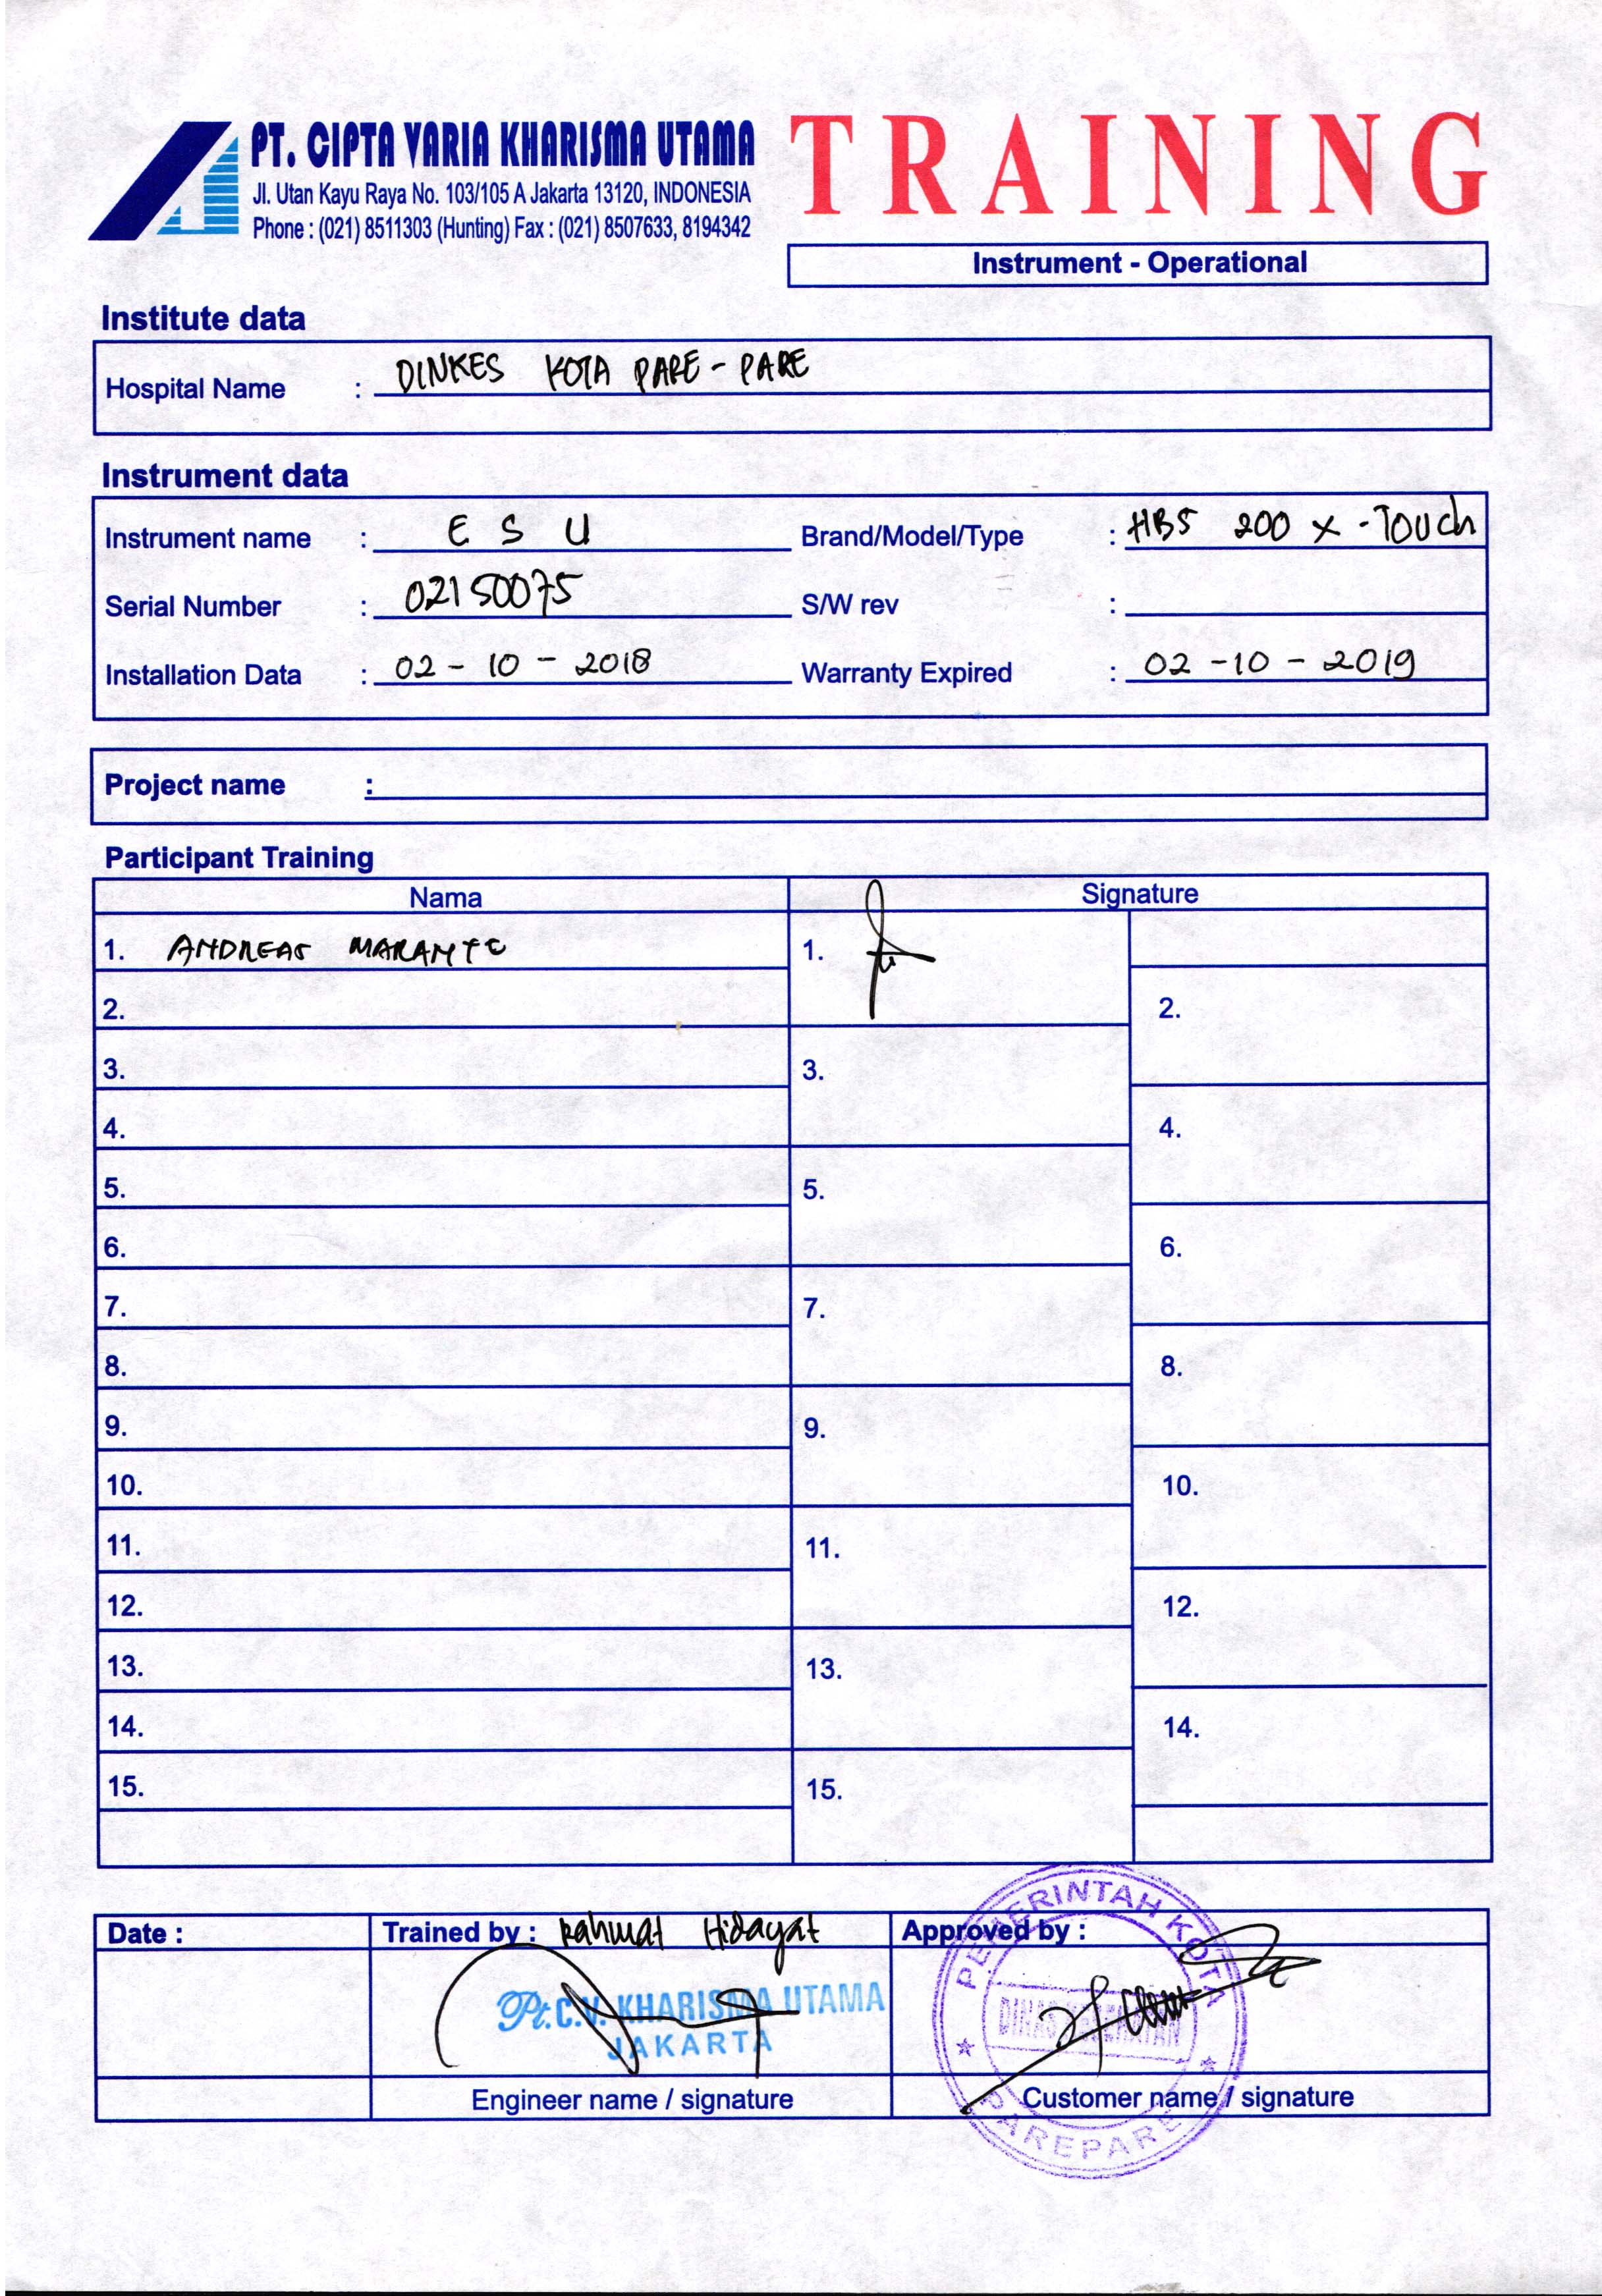 PT. CIPTA VARIA KHARISMA UTAMA
Jl. Utan Kayu Raya No. 103/105 A Jakarta 13120, INDONESIA
Phone : (021) 8511303 (Hunting) Fax : (021) 8507633, 8194342
TRAINING
Instrument - Operational
Institute data
Hospital Name : DINKES KOTA PARE - PARE
Instrument data
Instrument name : E S U Brand/Model/Type : HBS 200 X - TOUCh
Serial Number : 02150075 S/W rev :
Installation Data : 02 - 10 - 2018 Warranty Expired : 02 - 10 - 2019
Project name :
Participant Training
Nama Signature
1. ANDREAS 1.
2. 2.
3. 3.
4. 4.
5. 5.
6. 6.
7. 7.
8. 8.
9. 9.
10. 10.
11. 11.
12. 12.
13. 13.
14. 14.
15. 15.
Date : Trained by : Rahmat Hidayat Approved by :
Pt. C.V. KHARISMA UTAMA
JAKARTA
PEMERINTAH KOTA
DINAS KESEHATAN
PAREPARE
Engineer name / signature Customer name / signature